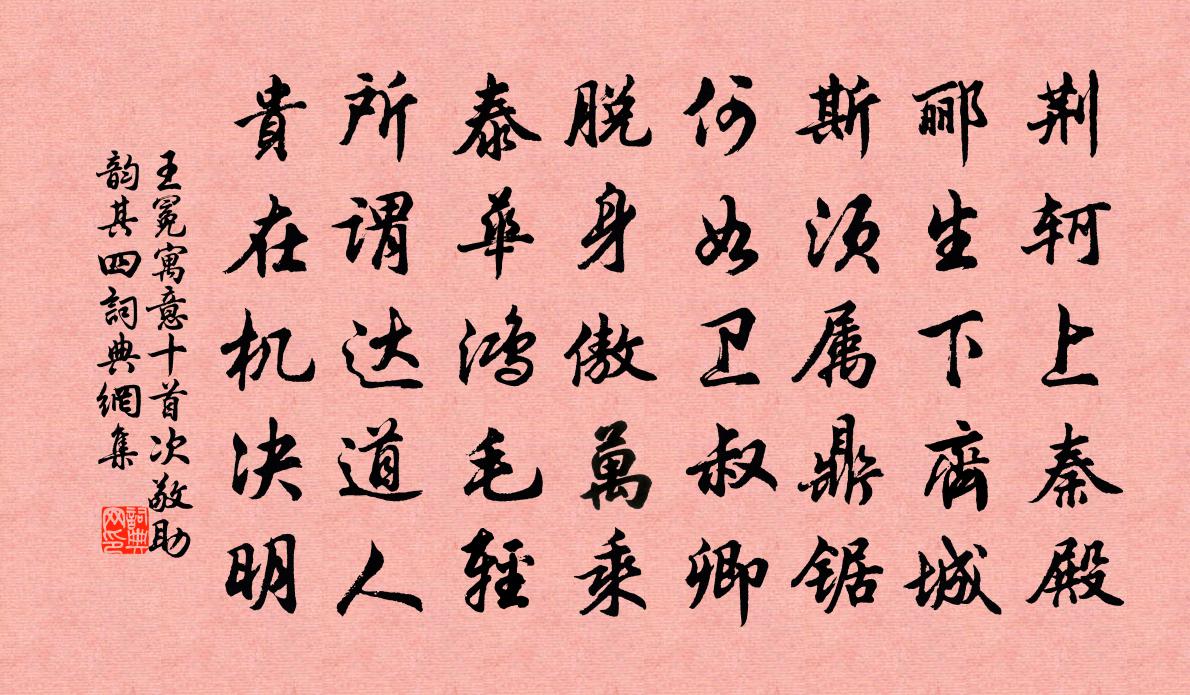 荆轲上秦殿
郦生下齊城
斯须属鼎锯
何如卫叔卿
脱身傲萬乘
泰華鸿毛輕
所谓达道人
貴在机决明
王冕寓意十首次敬助
韵其四詞典網集
詞典网印